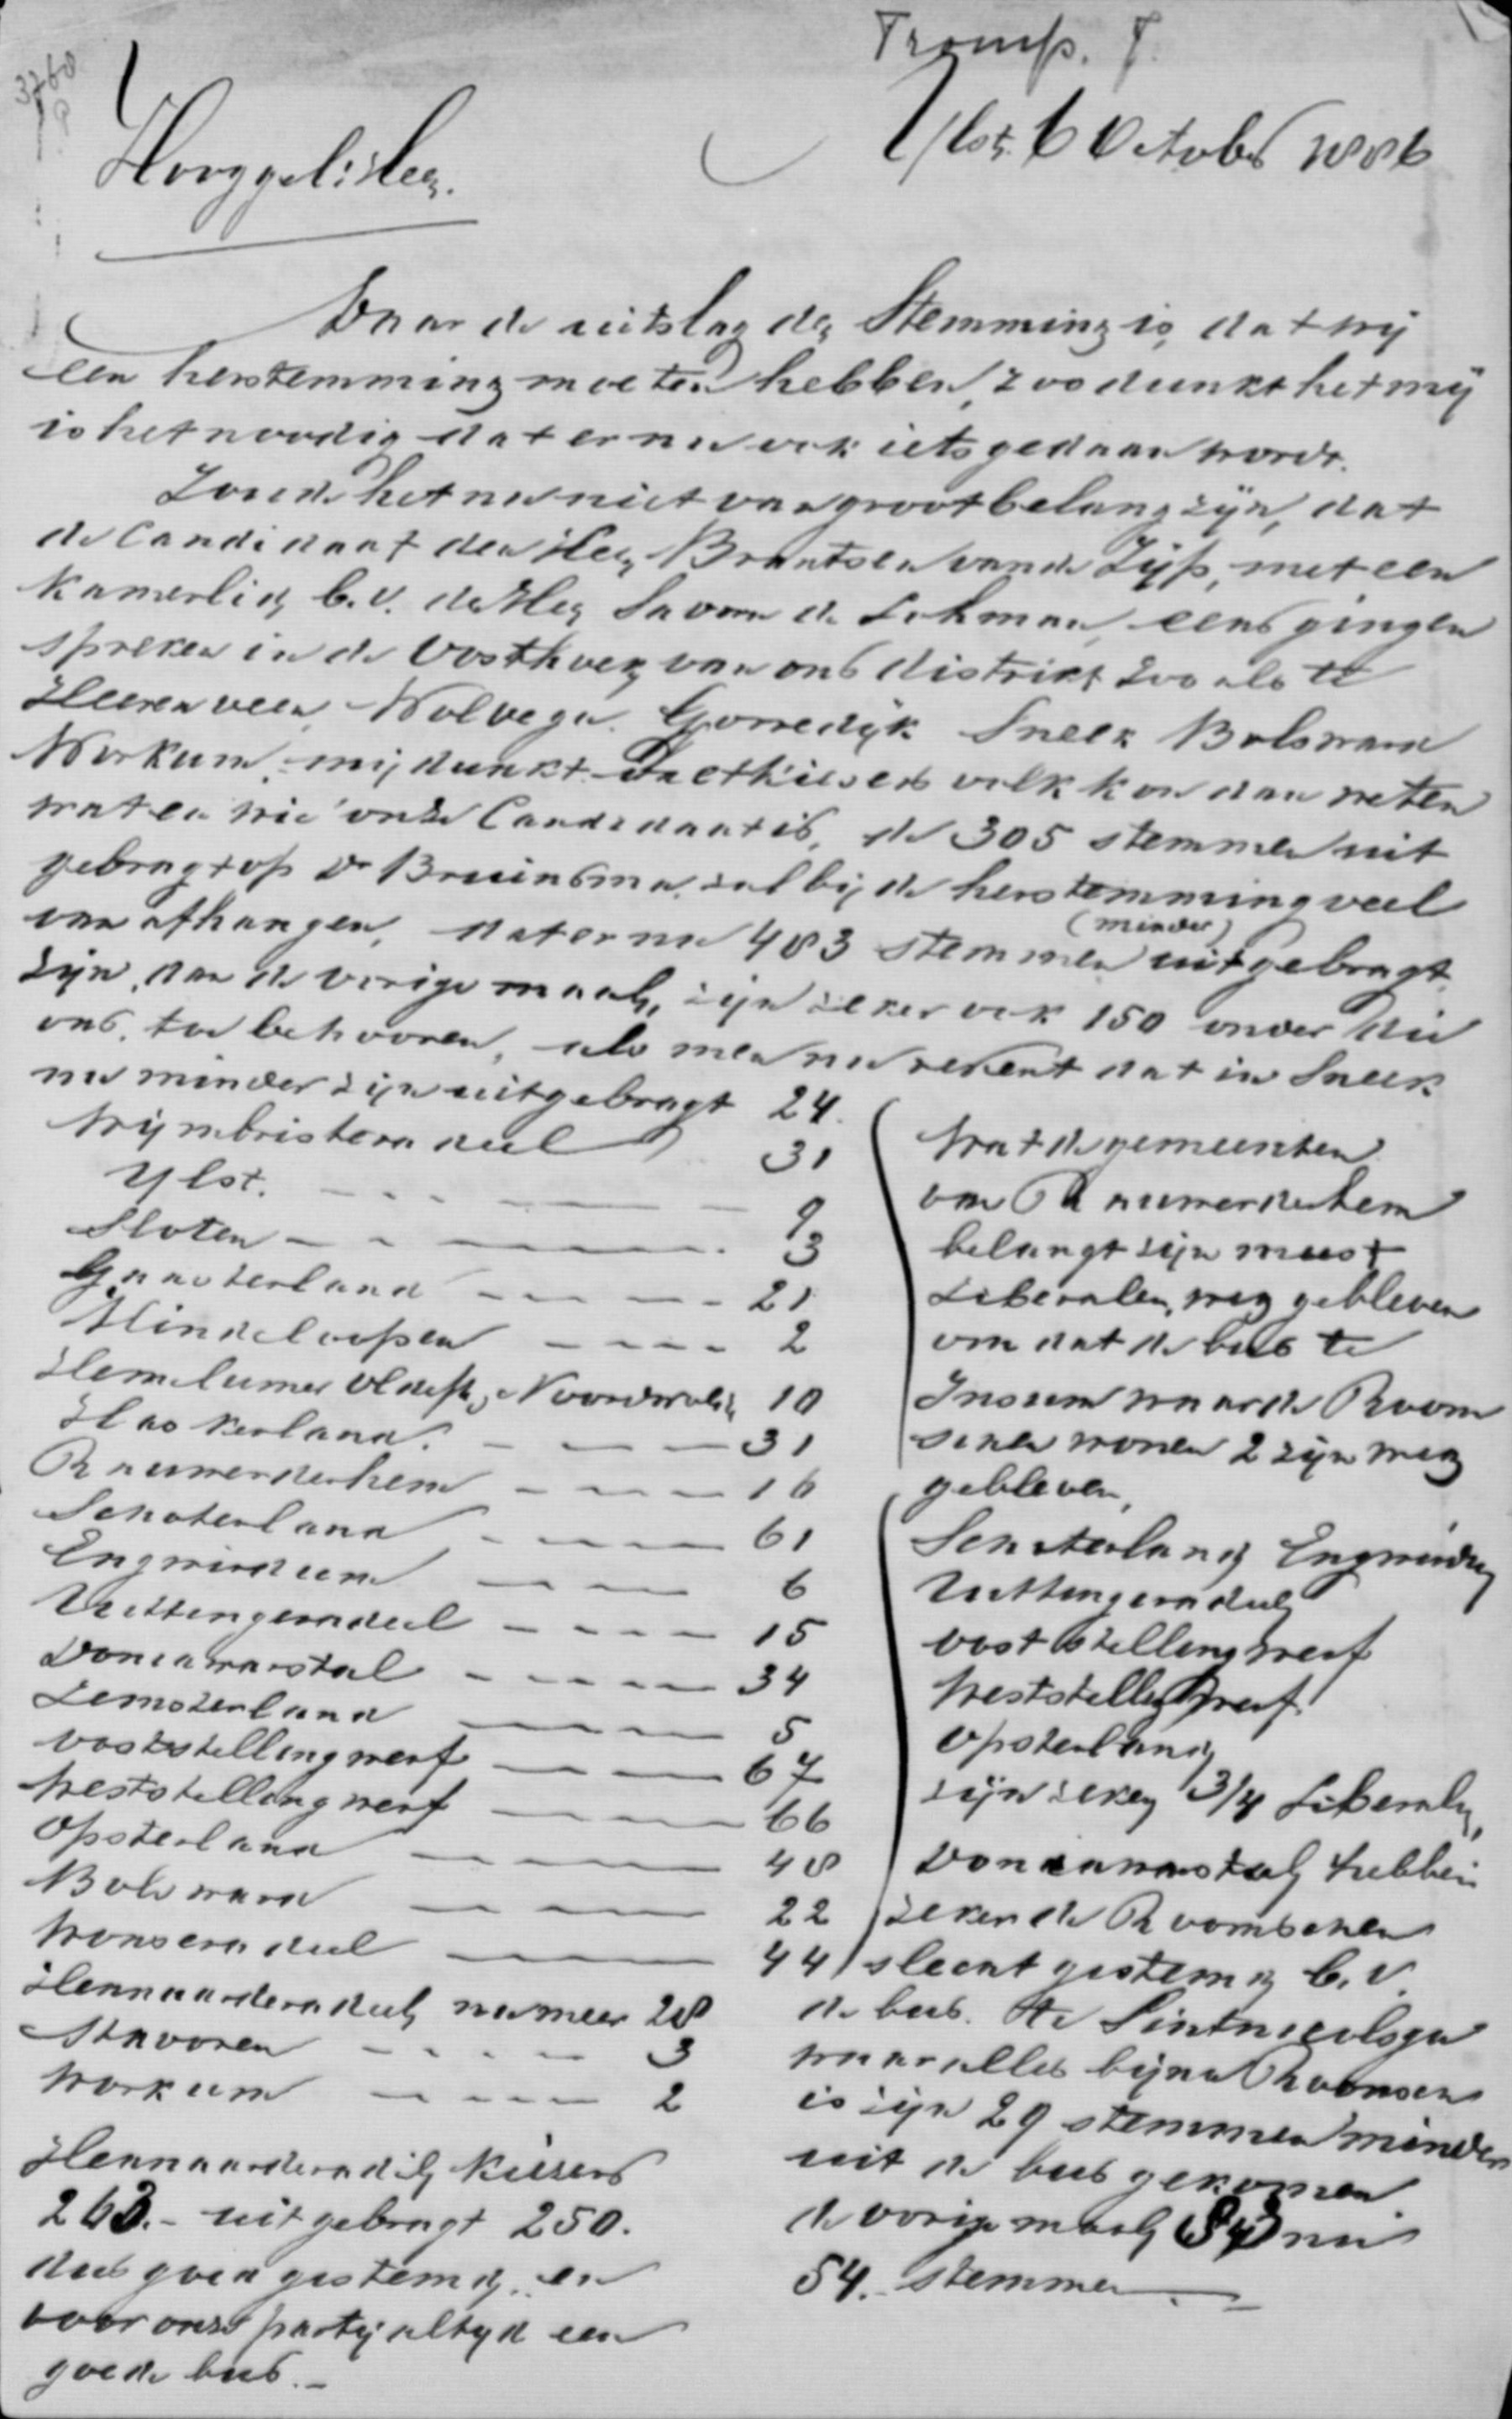 Tromp. T.
Ylst. 6 October 1886
Hooggel: Heer.
Daar de uitslag der Stemming is, dat wij
een herstemming moeten hebben, zoo dunkt het mij
is het noodig dat er nu ook iets gedaan wordt.
Zoude het nu niet van groot belang zijn, dat
de Candidaat den Heer Brantsen van de Zijp, met een
Kamerlid b.v. de Heer Savorn de Lohman, eens gingen
spreken in de Oosthoek van ons distrikt zoo als te
Heerenveen, Wolvega. Gorredijk Sneek Bolsward
Workum, mij dunkt het kiesers volk kon dan weten
wat en wie onze Candidaat is, de 305 stemmen uit
gebragt op Dr Bruinsma, zal bij de herstemming veel
van afhangen, dat er nu 483 stemmen (minder) uitgebragt
zijn, dan de vorige maal, zijn zeker ook 150 onder die
ons. toe behooren, als men nu rekent dat in Sneek
nu minder zijn uitgebragt 24.
Wijmbritseradeel 31
Ylst. 9
Sloten 3
Gaasterland 21
Hindeloopen 2
Hemelumer Oldeph, Noordwolde 10
Haskerland. 31
Rauwerderhem 16
Schoterland 61
Engwirdum 6
Uttingeradeel 15
Doniawarstal 34
Lemsterland 5
Ooststellingwerf 67
Weststellingwerf 66
Opsterland 48
Bolsward 22
Wonseradeel 44
Hennaarderadeel nu meer 28
Stavoren 3
Workum 2
Hennaarderadeel Kiesers
263.- uitgebragt 250.
dus goed gestemd, en
voor onze partij altyd een
goede bus.-
Wat de gemeenten
van Rauwerderhem
belangt zijn meest
Liberalen, weg gebleven
om dat de bus te
Irnsum waar de Room
schen wonen 2 zijn weg
gebleven,
Schoterland Engwirden
Uttingeradeel
Ooststellingwerf
Weststellingwerf
Opsterland
zijn zeker 3/4 Liberalen,
Doniawarstal hebben
zeker de Roomschen
slecht gestemd b.v.
de bus. te Sintnicolaga
waar alles bijna Roomsch
is zijn 29 stemmen minder
uit de bus gekomen
de vorige maal 83 nu
54. stemmen